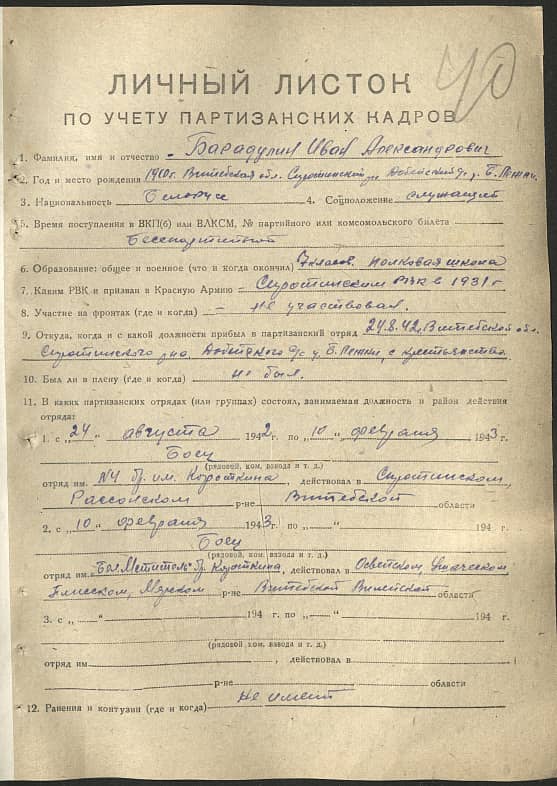 40
ЛИЧНЫЙ ЛИСТОК
ПО УЧЕТУ ПАРТИЗАНСКИХ КАДРОВ
1. Фамилия, имя и отчество Барадулин Иван Александрович
2. Год и место рождения 1910г. Витебская обл. Сиротинский
3. Национальность Белорус 4. Соцположение служащий
5. Время поступления в ВКП(б) или ВЛКСМ, № партийного или комсомольского билета
Беспартийный
6. Образование: общее и военное (что и когда окончил) 7 класов. полковая школа
7. Каким РВК и призван в Красную Армию – Сиротинским РВК в 1931 г
8. Участие на фронтах (где и когда) – не участвовал.
9. Откуда, когда и с какой должности прибыл в партизанский отряд 24.8.42, Витебской обл.
Сиротинского с крестьянства.
10. Был ли в плену (где и когда) не был.
11. В каких партизанских отрядах (или группах) состоял, занимаемая должность и район действия
отряда:
1. с „24" августа 1942 г. по „10" февраля 1943 г.
Боец
(рядовой, ком. взвода и т. д.)
отряд им. №4 бр. им. Короткина, действовал в Сиротинском,
Россонском р-не Витебской области
2. с „10" февраля 1943 г. по „ " 194 г.
Боец
(рядовой, ком. взвода и т. д.)
отряд им. Мститель бр. Короткина, действовал в Освейском, Ушачском,
Плисском, Мярском р-не Витебской Вилейской области
3. с „ " 194 г. по „ " 194 г.
(рядовой, ком. взвода и т. д.)
отряд им. , действовал в
р-не области
12. Ранения и контузии (где и когда) Не имеет